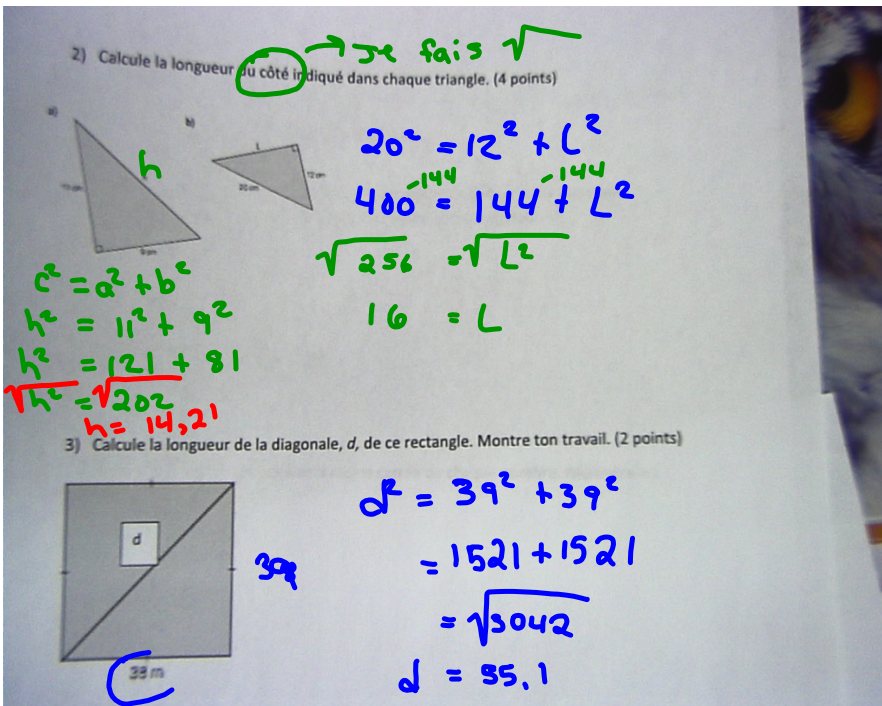 → Je fais √
2) Calcule la longueur du côté indiqué dans chaque triangle. (4 points)
a)
b)
h
L
12 cm
20 cm
9 cm
20² = 12² + L²
400 -144 = 144 -144 + L²
√256 = √L²
16 = L
c² = a² + b²
h² = 11² + 9²
h² = 121 + 81
√h² = √202
h = 14,21
3) Calcule la longueur de la diagonale, d, de ce rectangle. Montre ton travail. (2 points)
d
39
d² = 39² + 39²
= 1521 + 1521
= √3042
d = 55,1